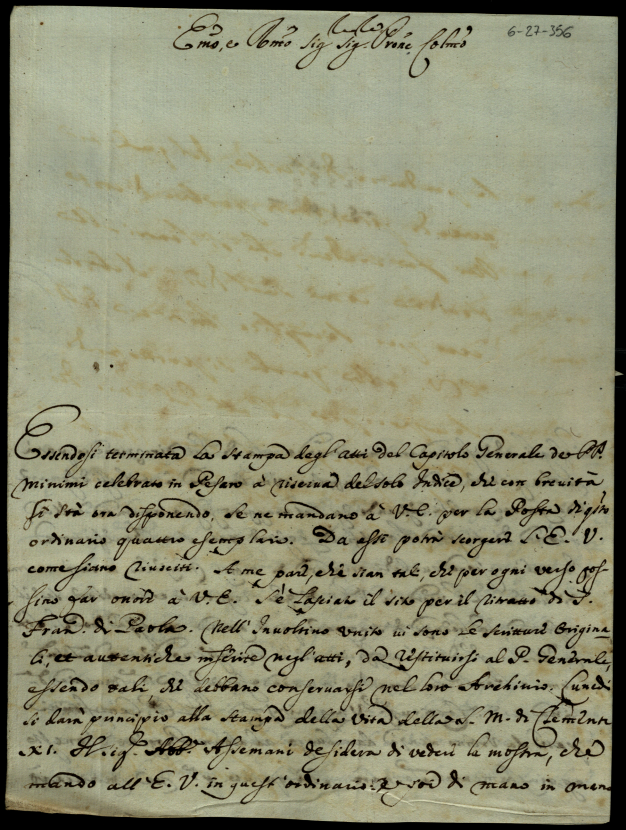 6-27-356
Emo, e Rmo Sig Sig. Prone Colmo
Essendosi terminata la stampa degl'atti del Capitolo Generale de PP.
Minimi celebrato in Pesaro à riserva del solo Indice, che con brevità
si stà ora disponendo, se ne mandano à V. E. per la Posta di qsto
ordinario quattro esemplari. Da essi potrà scorgere l'E. V.
come siano riusciti. A me pare, che sian tali, che per ogni verso pos-
sino far onore à V. E. Si è lasciato il sito per il ritratto di S.
Fran. di Paola. Nell'Involtino unito vi sono le scritture Origina-
li, et autentiche inserite negl'atti, da restituirsi al P. Generale,
essendo tali che debbano conservarsi nel loro Archivio. Lunedì
si darà principio alla stampa della vita della S. M. di Clemente
XI. Il Sig. Abb. Assemani desidera di vedere la mostra, che
mando all'E. V. in quest'ordinario. di mano in mano